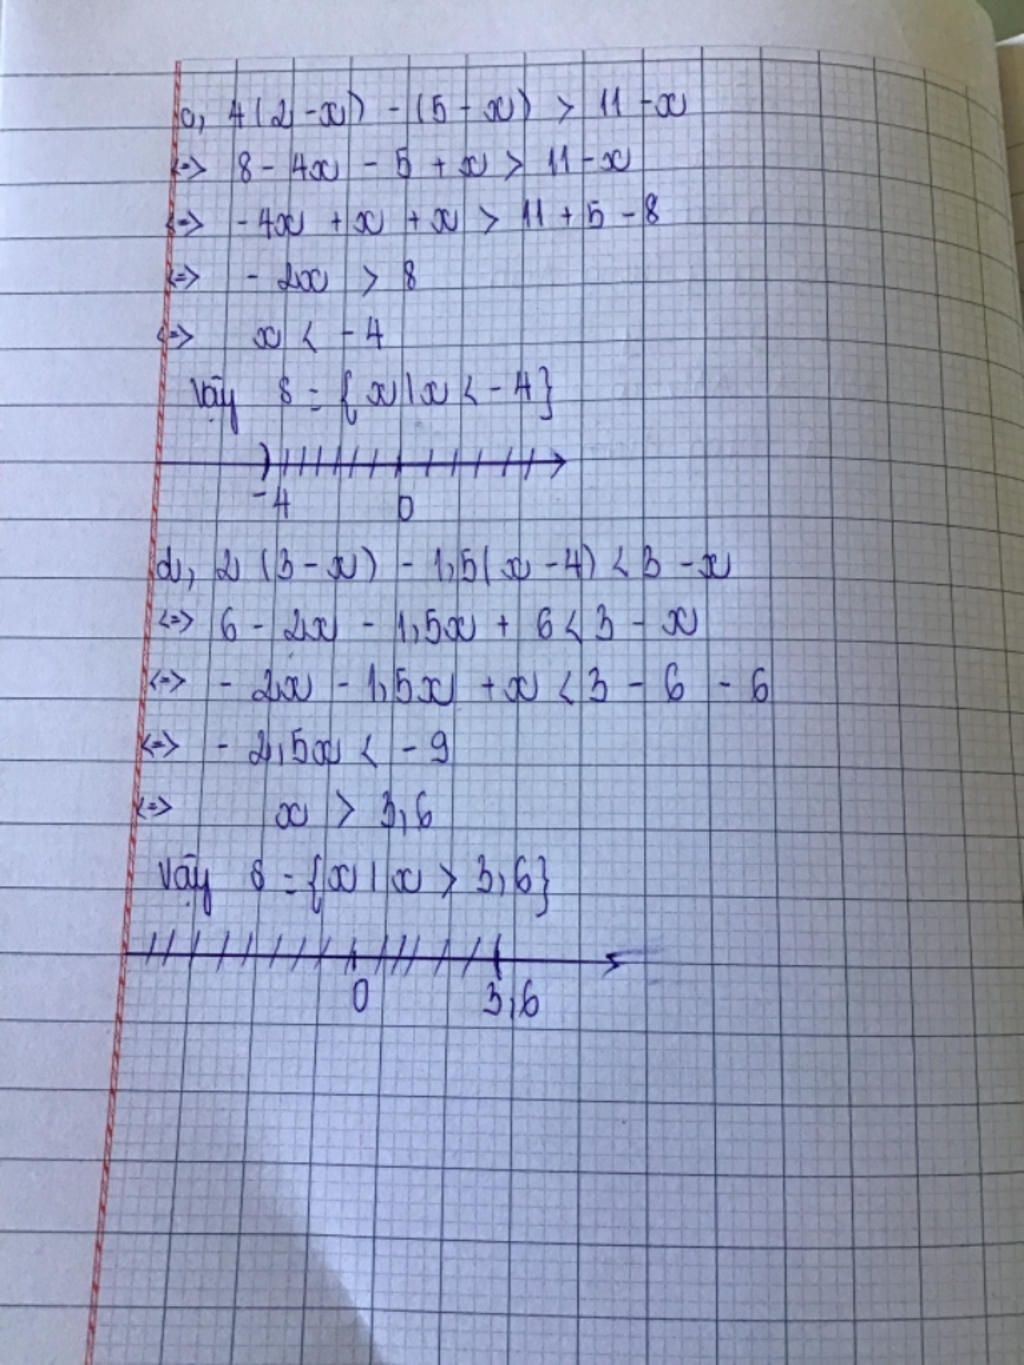 c, 4(2-x) - (5-x) > 11-x
<=> 8-4x-5+x > 11-x
<=> -4x+x+x > 11+5-8
<=> -2x > 8
<=> x < -4
Vậy S = {x|x < -4}
-4 0
d, 2(3-x) - 1,5(x-4) < 3-x
<=> 6-2x-1,5x+6 < 3-x
<=> -2x-1,5x+x < 3-6-6
<=> -2,5x < -9
<=> x > 3,6
Vậy S = {x|x > 3,6}
0 3,6